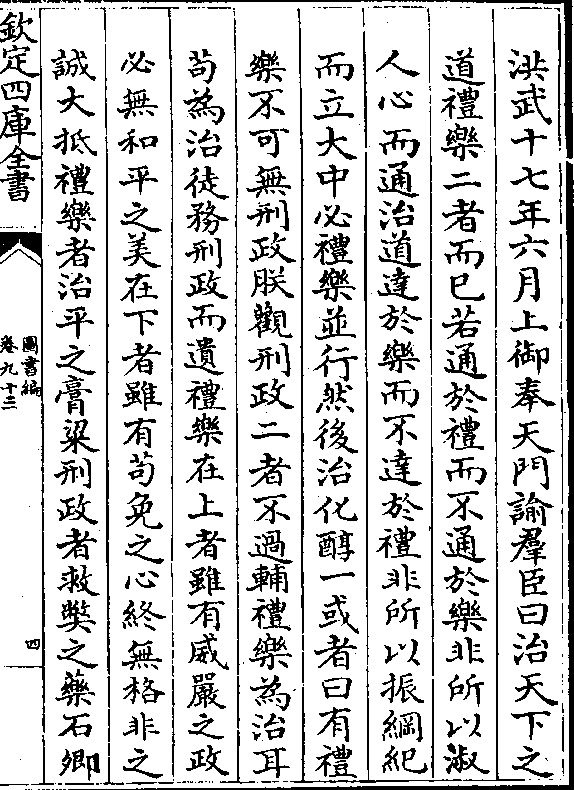 洪武十七年六月上御奉天門諭羣臣曰治天下之
道禮樂二者而已若通於禮而不通於樂非所以淑
人心而通治道達於樂而不達於禮非所以振綱紀
而立大中必禮樂並行然後治化醇一或者曰有禮
樂不可無刑政朕觀刑政二者不過輔禮樂為治耳
苟為治徒務刑政而遺禮樂在上者雖有威嚴之政
必無和平之美在下者雖有苟免之心終無格非之
誠大抵禮樂者治平之膏粱刑政者救獘之藥石卿
欽定四庫全書
圖書編
卷九十三
四